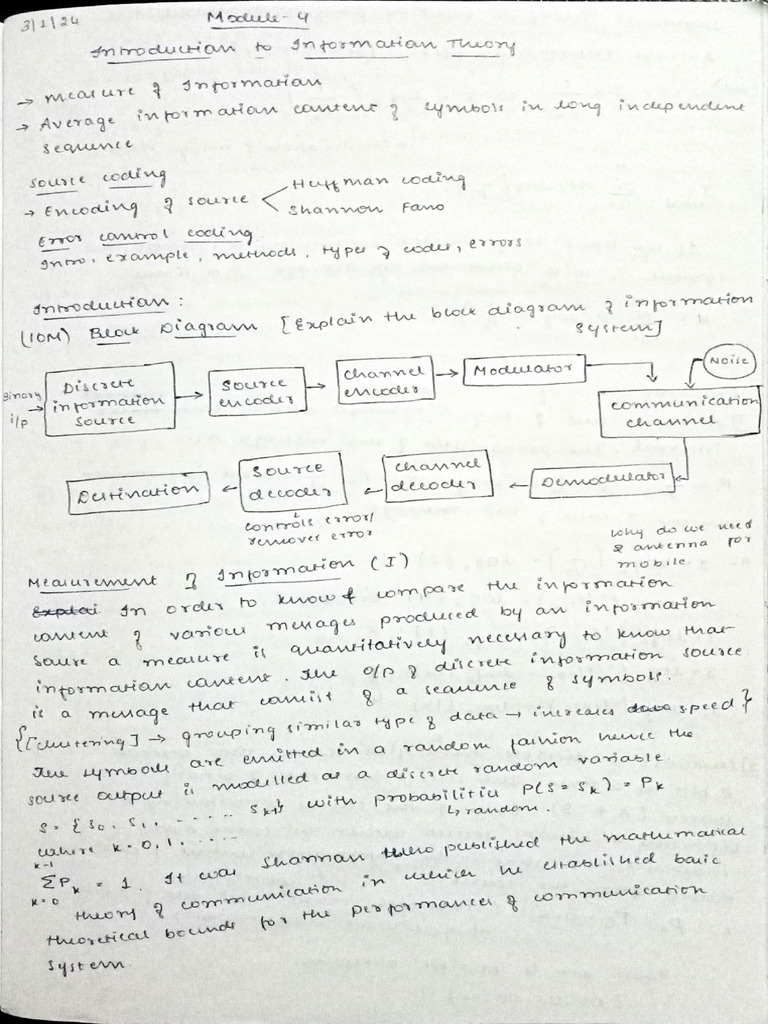 3/1/24
Module-4
Introduction to Information Theory
→ Measure of Information
→ Average information content of symbols in long independent
sequence
Source coding
→ Encoding of source < Huffman coding
Shannon Fano
Error control coding
Intro, example, methods, types of codes, errors
Introduction :
(10M) Block Diagram [Explain the block diagram of information
system]
Binary
i/p
Discrete
information
source
Source
encoder
channel
encoder
Modulator
Noise
communication
channel
Destination
Source
decoder
channel
decoder
Demodulator
controls error/
remover error
why do we need
antenna for
mobile
Measurement of Information (I)
In order to know & compare the information
content of various messages produced by an information
source a measure is quantitatively necessary to know that
information content. The o/p of discrete information source
is a message that consist of a sequence of symbols.
{[clustering] → grouping similar type of data → increases speed}
The symbols are emitted in a random fashion hence the
source output is modelled as a discrete random variable.
S = {S0, S1, ..... Sk-1} with probabilities P(S = Sk) = Pk
↳ random.
where k = 0, 1. .....
k-1
ΣPk = 1. It was Shannan who published the mathematical
k=0
theory of communication in which he established basic
theoretical bounds for the performances of communication
system